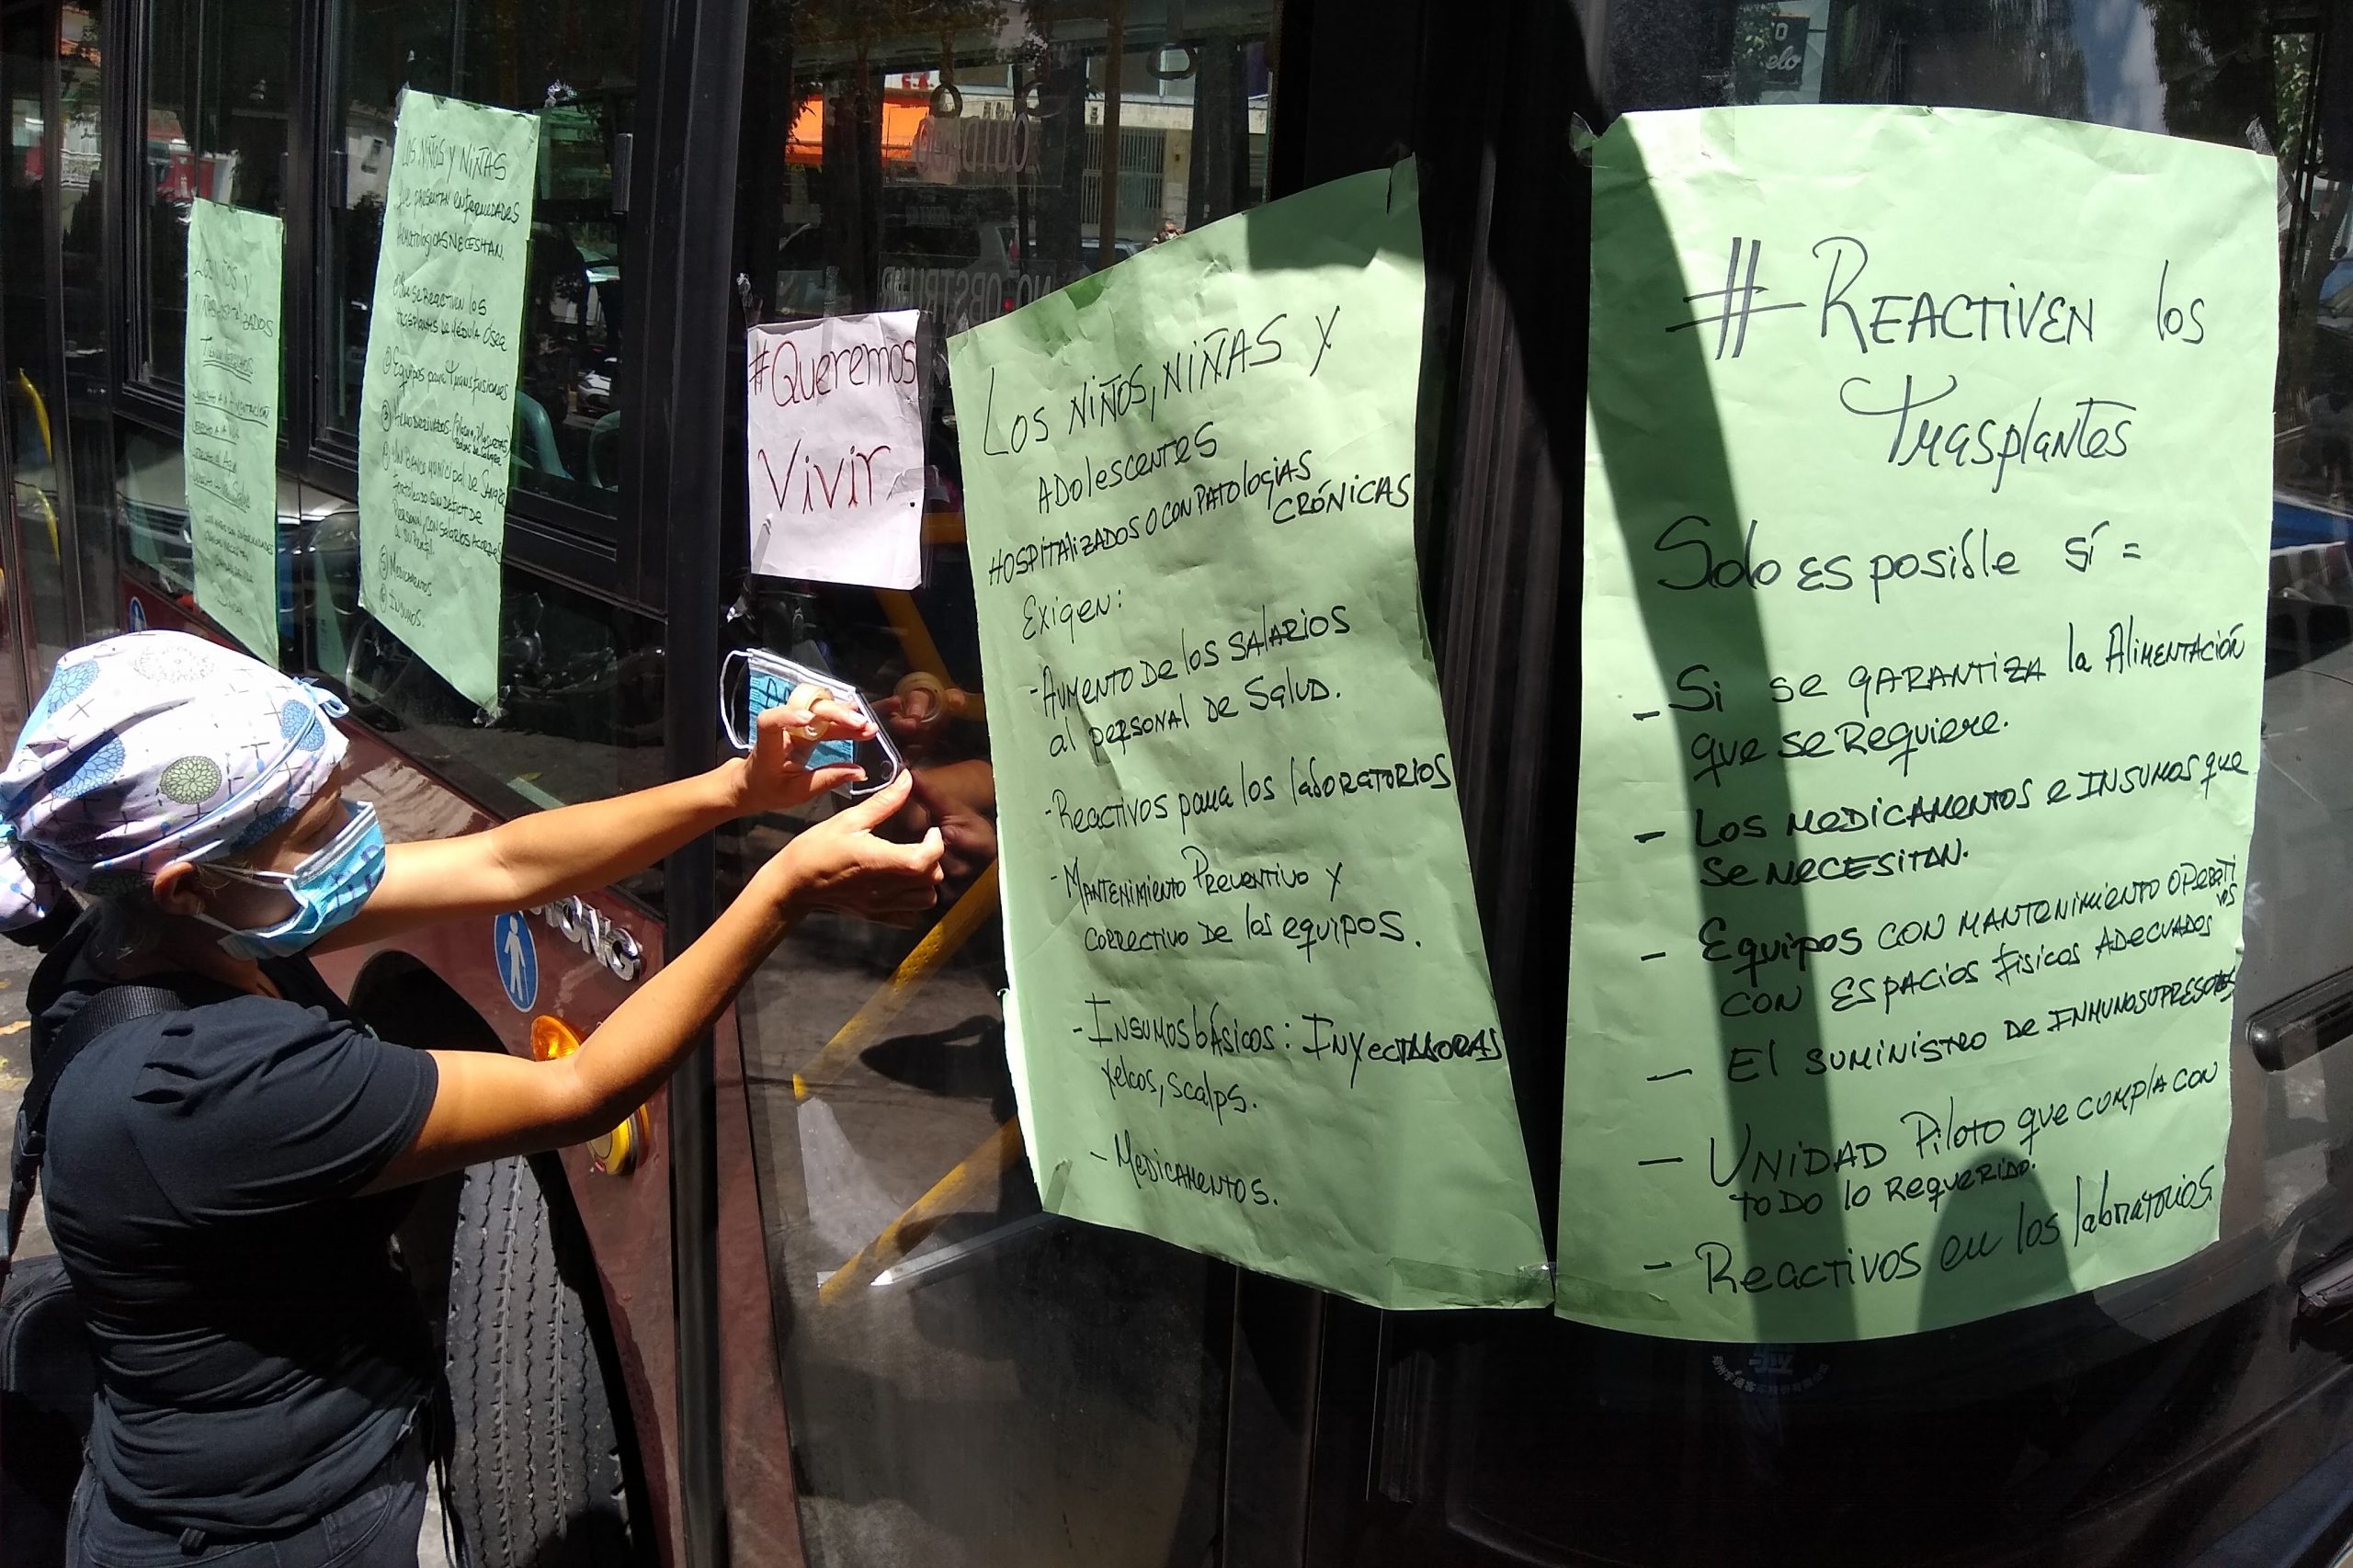 LOS NIÑOS Y
HOSPITALIZADOS
TIENEN DERECHOS
LOS NIÑOS Y NIÑAS
QUE PRESENTAN ENFERMEDADES
HEMATOLOGICAS NECESITAN.
QUE SE REACTIVEN LOS
TRASPLANTES DE MÉDULA ÓSEA
② Equipos para Transfusiones
③ HEMODERIVADOS (Plasma, Plaquetas,
④ UN BANCO MUNICIPAL DE SANGRE
fortalecido SIN DÉFICIT DE
PERSONAL, CON SALARIOS ACORDES
A SU PERFIL.
⑤ MEDICAMENTOS
⑥ INSUMOS.
#Queremos
Vivir.
LOS NIÑOS, NIÑAS Y
ADOLESCENTES
HOSPITALIZADOS O CON PATOLOGIAS
CRÓNICAS
Exigen:
-AUMENTO DE los SALARIOS
al personal DE Salud.
-Reactivos para los laboratorios
-MANTENIMIENTO PREVENTIVO Y
CORRECTIVO DE los equipos.
-INSUMOS básicos: INyectadoras
Yelcos, scalps.
- MEDICAMENTOS.
# REACTIVEN los
Trasplantes
Solo es posible sí =
- Si se GARANTIZA la Alimentación
que se Requiere.
- Los MEDICAMENTOS e INSUMOS que
se NECESITAN.
- Equipos CON MANTENIMIENTO OPERATI
VOS
CON ESPACIOS físicos ADECUADOS
- El SUMINISTRO DE INMUNOSUPRESORES
- UNIDAD Piloto que cumpla CON
TODO lo Requerido.
- Reactivos en los labratorios.